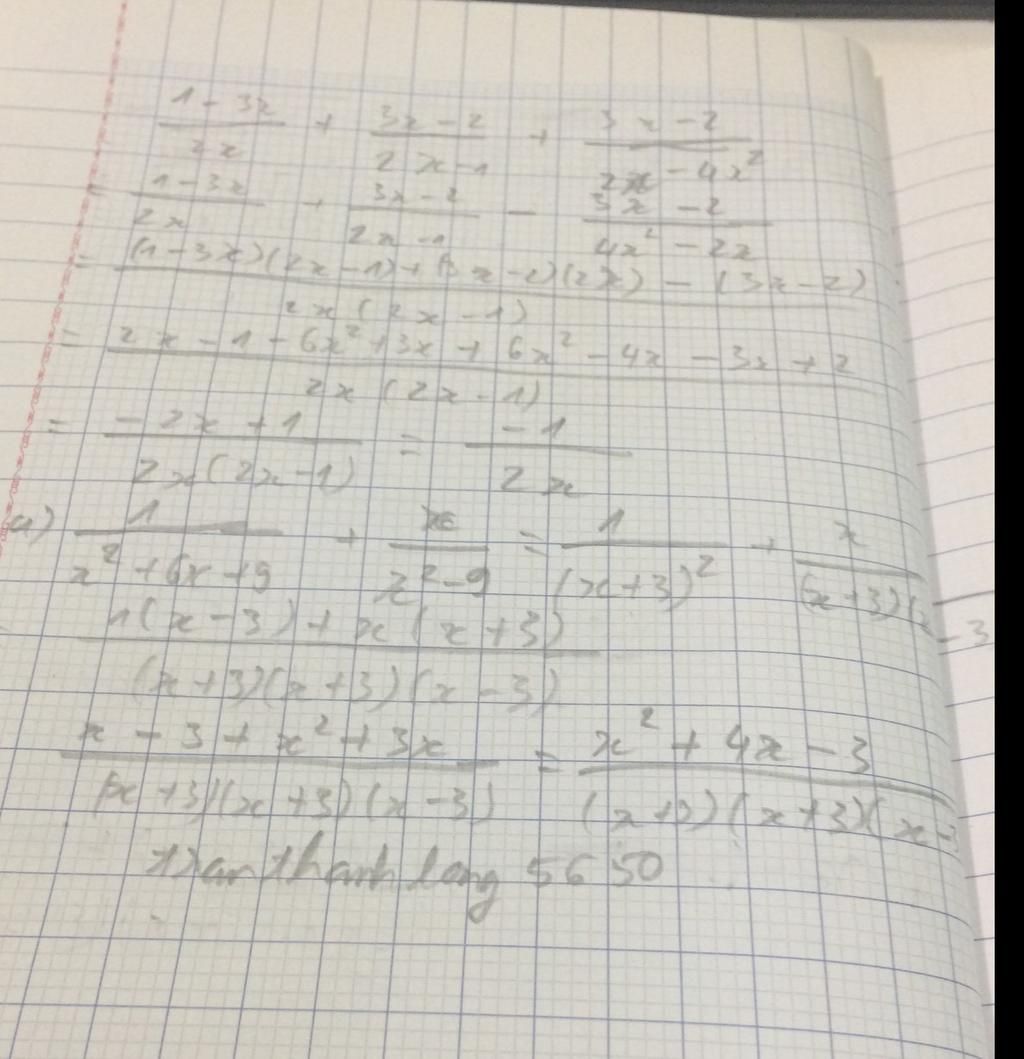 1-3x/2x + 3x-2/2x-1 + 3x-2/2x-4x²
= 1-3x/2x + 3x-2/2x-1 - 3x-2/4x²-2x
= (1-3x)(2x-1)+(3x-2)(2x)-(3x-2)/2x(2x-1)
= 2x-1-6x²+3x+6x²-4x-3x+2/2x(2x-1)
= -2x+1/2x(2x-1) = -1/2x
a) 1/x²+6x+9 + x/x²-9 = 1/(x+3)² + x/(x+3)(x-3
1(x-3)+x(x+3)/(x+3)(x+3)(x-3)
x-3+x²+3x/(x+3)(x+3)(x-3) = x²+4x-3/(x+3)(x+3)(x-
tran thanh long 5650